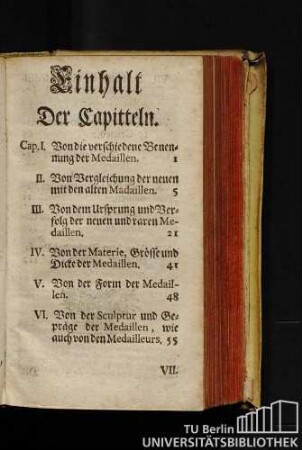 Einhalt
Der Capitteln.
Cap. I. Von die verschiedene Benen-
nung der Medaillen. 1
II. Von Vergleichung der neuen
mit den alten Madaillen. 5
III. Von dem Ursprung und Ver-
folg der neuen und raren Me-
daillen. 21
IV. Von der Materie, Grösse und
Dicke der Medaillen. 41
V. Von der Form der Medail-
len. 48
VI. Von der Sculptur und Ge-
präge der Medaillen, wie
auch von den Medailleurs. 55
VII.
TU Berlin
UNIVERSITÄTSBIBLIOTHEK